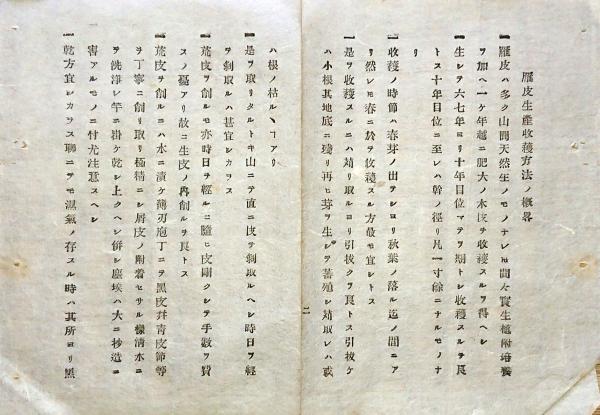 雁皮生産収穫方法ノ概畧
一雁皮ハ多ク山間天然生ノモノナレ𪜈間々實生植附培養
ヲ加ヘ一ケ年越ニ肥大ノ木皮ヲ收穫スルヲ得ヘシ
一生シテ六七年ヨリ十年目位マテヲ期トシ收穫スルヲ良
トス十年目位ニ至レハ幹ノ徑リ凡一寸餘ニナルモノナ
リ
一收穫ノ時節ハ春芽ノ出テシヨリ秋葉ノ落ル迄ノ間ニア
リ然レ𪜈春ニ於テ收穫スル方最モ宜シトス
一是ヲ收穫スルニハ苅リ取ルヨリ引拔クヲ良トス引拔ケ
ハ小根其地底ニ殘リ再ヒ芽ヲ生シテ蕃殖シ苅取レハ或
ハ根ノ枯ルヽヿアリ
一是ヲ取リタルトキ山ニテ直ニ皮ヲ剥取ルヘシ時日ヲ經
テ剥取ルハ甚宜シカラス
一荒皮ヲ削ルモ亦時日ヲ經ルニ隨ヒ皮剛クシテ手數ヲ費
スノ憂アリ故ニ生皮ノ內削ルヲ良トス
一荒皮ヲ削ルニハ水ニ漬ケ薄刃庖丁ニテ黑皮幷青皮節等
ヲ丁寧ニ削リ取リ極精ニシ屑皮ノ附着セサル樣清水ニ
ヲ洗淨シ竿ニ掛ケ乾シ上クヘシ併シ塵埃ハ大ニ抄造ニ
害アルモノニ付尤注意スヘシ
一乾方宜シカラス聊ニテモ濕氣ノ存スル時ハ其所ヨリ黑
二